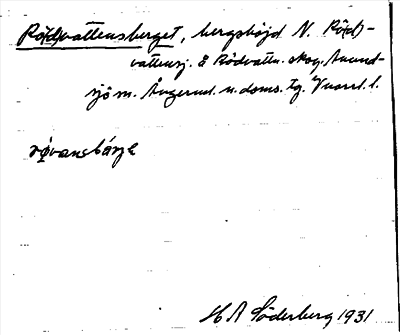 Rö(d)vattensberget, bergshöjd N. Rö(d)-
vattensj. å Rödvattn. skog, Anund-
sjö sn. Ångerml. n. doms. tg. Vnorrl. l.
H A Söderberg 1931